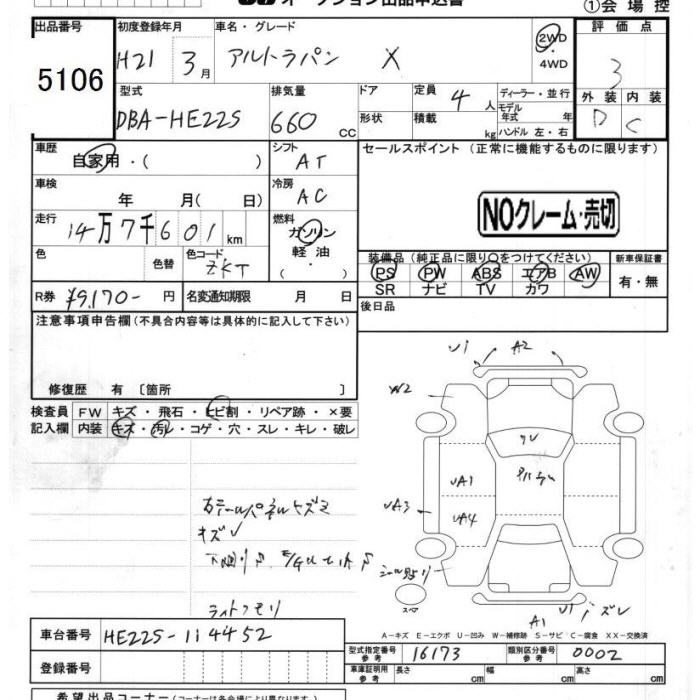 オークション出品申込書
①会場控
出品番号 初度登録年月 車名・グレード 評価点
5106 H21 3月 アルトラパン X 2WD・4WD 3
型式 排気量 ドア 定員 4人 ディーラー・並行 外装 内装
DBA-HE22S 660cc 形状 積載 kg モデル年式 年 ハンドル 左・右 D C
車歴 自家用・( ) シフト AT セールスポイント(正常に機能するものに限ります)
車検 年 月(日) 冷房 AC
NOクレーム・売切
走行 14万7千601km 燃料 ガソリン 軽油・
色 色替 色コード ZKT 装備品(純正品に限り○をつけてください) 新車保証書
PS PW ABS エアB AW 有・無
SR ナビ TV カワ
R券 ¥9,170- 円 名変通知期限 月 日 後日品
注意事項申告欄(不具合内容等は具体的に記入して下さい)
修復歴 有 [箇所 ]
検査員 FW キズ・飛石・ヒビ割・リペア跡・×要
記入欄 内装 キズ・汚レ・コゲ・穴・スレ・キレ・破レ
A2
W2
UA1
UA3
UA4
キズ
ライトクモリ
スペア
A1
A-キズ E-エクボ U-凹み W-補修跡 S-サビ C-腐食 XX-交換済
車台番号 HE22S-114452
型式指定番号 参考 16173 類別区分番号 参考 0002
登録番号 車庫証明用 参考 長さ cm 幅 cm 高さ cm
希望出品コーナー(コーナーは各会場により異なります)